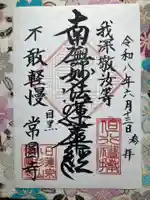 令和八年六月三日 参拝
我深敬汝等
南無妙法蓮華経
不敢軽慢
目黒
常圓寺